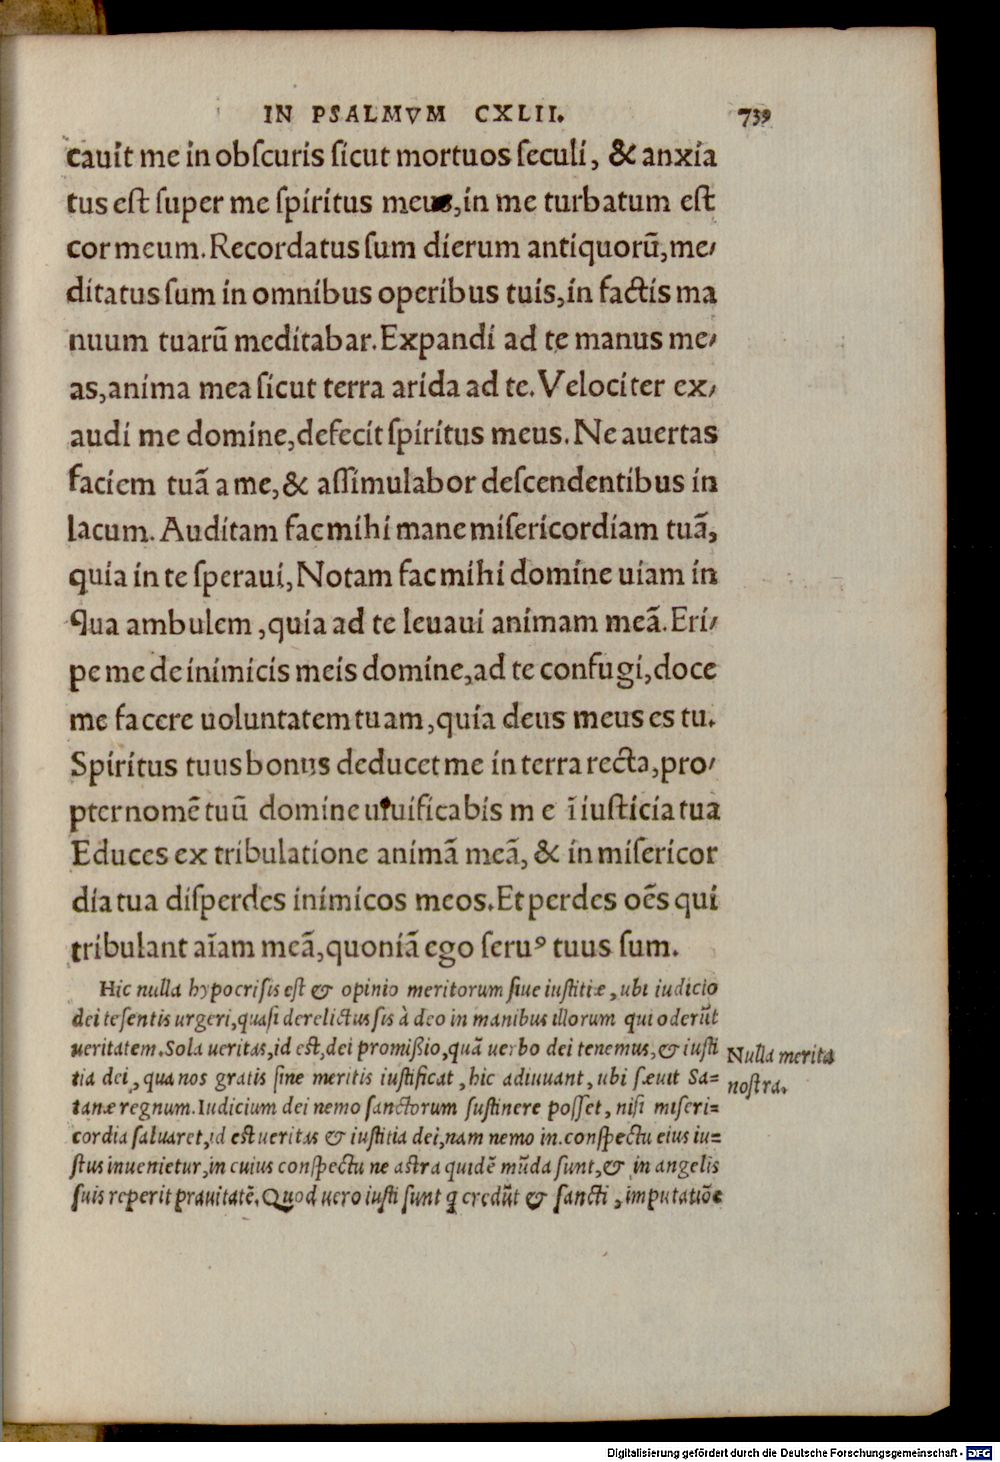 IN PSALMVM CXLII. 739
cauit me in obſcuris ſicut mortuos ſeculi, & anxia
tus eſt ſuper me ſpiritus meus, in me turbatum eſt
cor meum. Recordatus ſum dierum antiquorũ, me/
ditatus ſum in omnibus operibus tuis, in factis ma
nuum tuarũ meditabar. Expandi ad te manus me/
as, anima mea ſicut terra arida ad te. Velociter ex/
audi me domine, defecit ſpiritus meus. Ne auertas
faciem tuã a me, & aſſimulabor deſcendentibus in
lacum. Auditam fac mihi mane miſericordiam tuã,
quia in te ſperaui, Notam fac mihi domine uiam in
qua ambulem, quia ad te leuaui animam meã. Eri/
pe me de inimicis meis domine, ad te confugi, doce
me facere uoluntatem tuam, quia deus meus es tu.
Spiritus tuus bonus deducet me in terra recta, pro/
pter nomẽ tuũ domine uiuificabis m e ĩ iuſticia tua
Educes ex tribulatione animã meã, & in miſericor
dia tua diſperdes inimicos meos. Et perdes oẽs qui
tribulant aĩam meã, quoniã ego ſeruꝰ tuus ſum.
Hic nulla hypocriſis eſt & opinio meritorum ſiue iuſtitiæ, ubi iudicio
dei te ſentis urgeri, quaſi derelictus ſis à deo in manibus illorum qui oderũt
ueritatem. Sola ueritas, id eſt, dei promißio, quã uerbo dei tenemus, & iuſti
tia dei, qua nos gratis ſine meritis iuſtificat, hic adiuuant, ubi ſæuit Sa=
tanæ regnum. Iudicium dei nemo ſanctorum ſuſtinere poſſet, niſi miſeri=
cordia ſaluaret, id eſt ueritas & iuſtitia dei, nam nemo in conſpectu eius iu=
ſtus inuenietur, in cuius conſpectu ne aſtra quidẽ mũda ſunt, & in angelis
ſuis reperit prauitatẽ. Quod uero iuſti ſunt q credũt & ſancti, imputatiõe
Nulla merita
noſtra.
Digitalisierung gefördert durch die Deutsche Forschungsgemeinschaft - DFG